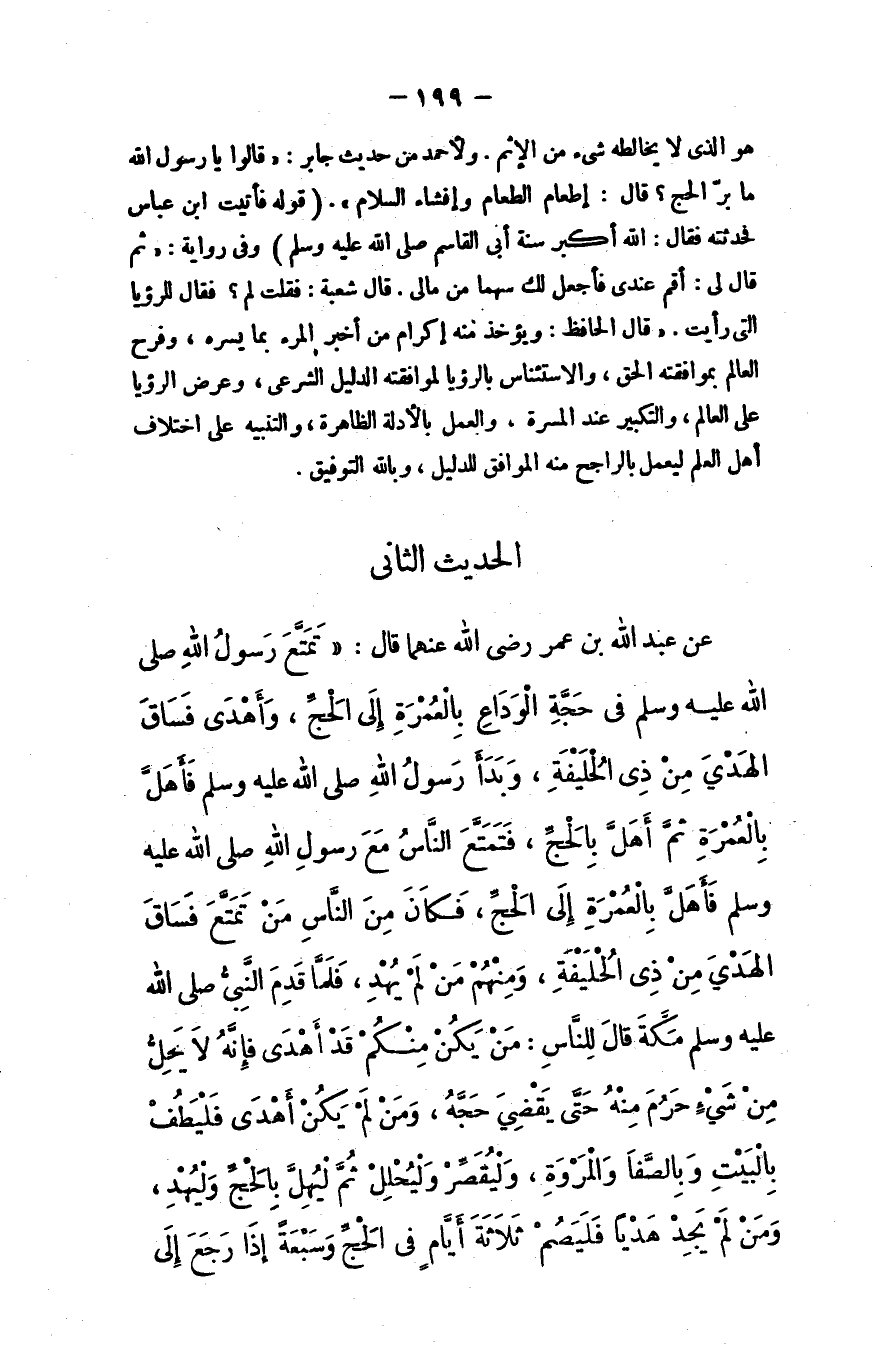 - ١٩٩ -
هو الذى لا يخالطه شىء من الإثم . ولأحمد من حديث جابر : « قالوا يا رسول الله
ما برّ الحج ؟ قال : إطعام الطعام وإفشاء السلام » . ( قوله فأتيت ابن عباس
فحدثته فقال : الله أكبر سنة أبى القاسم صلى الله عليه وسلم ) وفى رواية : « ثم
قال لى : أقم عندى فأجعل لك سهما من مالى . قال شعبة : فقلت لم ؟ فقال للرؤيا
التى رأيت . » قال الحافظ : ويؤخذ منه إكرام من أخبر المرء بما يسره ، وفرح
العالم بموافقته الحق ، والاستئناس بالرؤيا لموافقته الدليل الشرعى ، وعرض الرؤيا
على العالم ، والتكبير عند المسرة ، والعمل بالأدلة الظاهرة ، والتنبيه على اختلاف
أهل العلم ليعمل بالراجح منه الموافق للدليل ، وبالله التوفيق .
الحديث الثانى
عن عبد الله بن عمر رضى الله عنهما قال : « تَمَتَّعَ رَسولُ اللهِ صلى
الله عليه وسلم فى حَجَّةِ الْوَدَاعِ بِالْعُمْرَةِ إِلَى الْحَجِّ ، وَأَهْدَى فَسَاقَ
الهَدْيَ مِنْ ذِى الْحُلَيْفَةِ ، وَبَدَأَ رَسولُ اللهِ صلى الله عليه وسلم فَأَهَلَّ
بِالْعُمْرَةِ ثمَّ أَهَلَّ بِالْحَجِّ ، فَتَمَتَّعَ النَّاسُ مَعَ رسولِ اللهِ صلى الله عليه
وسلم فَأَهَلَّ بِالْعُمْرَةِ إِلَى الْحَجِّ ، فَكانَ مِنَ النَّاسِ مَنْ تَمَتَّعَ فَسَاقَ
الهَدْيَ مِنْ ذِى الْحُلَيْفَةِ ، وَمِنْهُمْ مَنْ لَمْ يُهْدِ ، فَلَمَّا قَدِمَ النَّبِيُّ صلى الله
عليه وسلم مَكَّةَ قالَ لِلنَّاسِ : مَنْ يَكُنْ مِنْكُمْ قَدْ أَهْدَى فإِنَّهُ لاَ يَحِلُّ
مِنْ شَيْءٍ حَرُمَ مِنْهُ حَتَّى يَقْضِيَ حَجَّهُ ، وَمَنْ لَمْ يَكُنْ أَهْدَى فَلْيَطُفْ
بِالْبَيْتِ وَبِالصَّفاَ وَالْمَرْوَةِ ، وَلْيُقَصِّرْ وَلْيُحْلِلْ ثُمَّ لْيُهِلَّ بِالْحَجِّ وَلْيُهْدِ ،
وَمَنْ لَمْ يَجِدْ هَدْياً فَلْيَصُمْ ثَلاَثَةَ أَيَّامٍ فى الْحَجِّ وَسَبْعَةً إِذَا رَجَعَ إِلَى